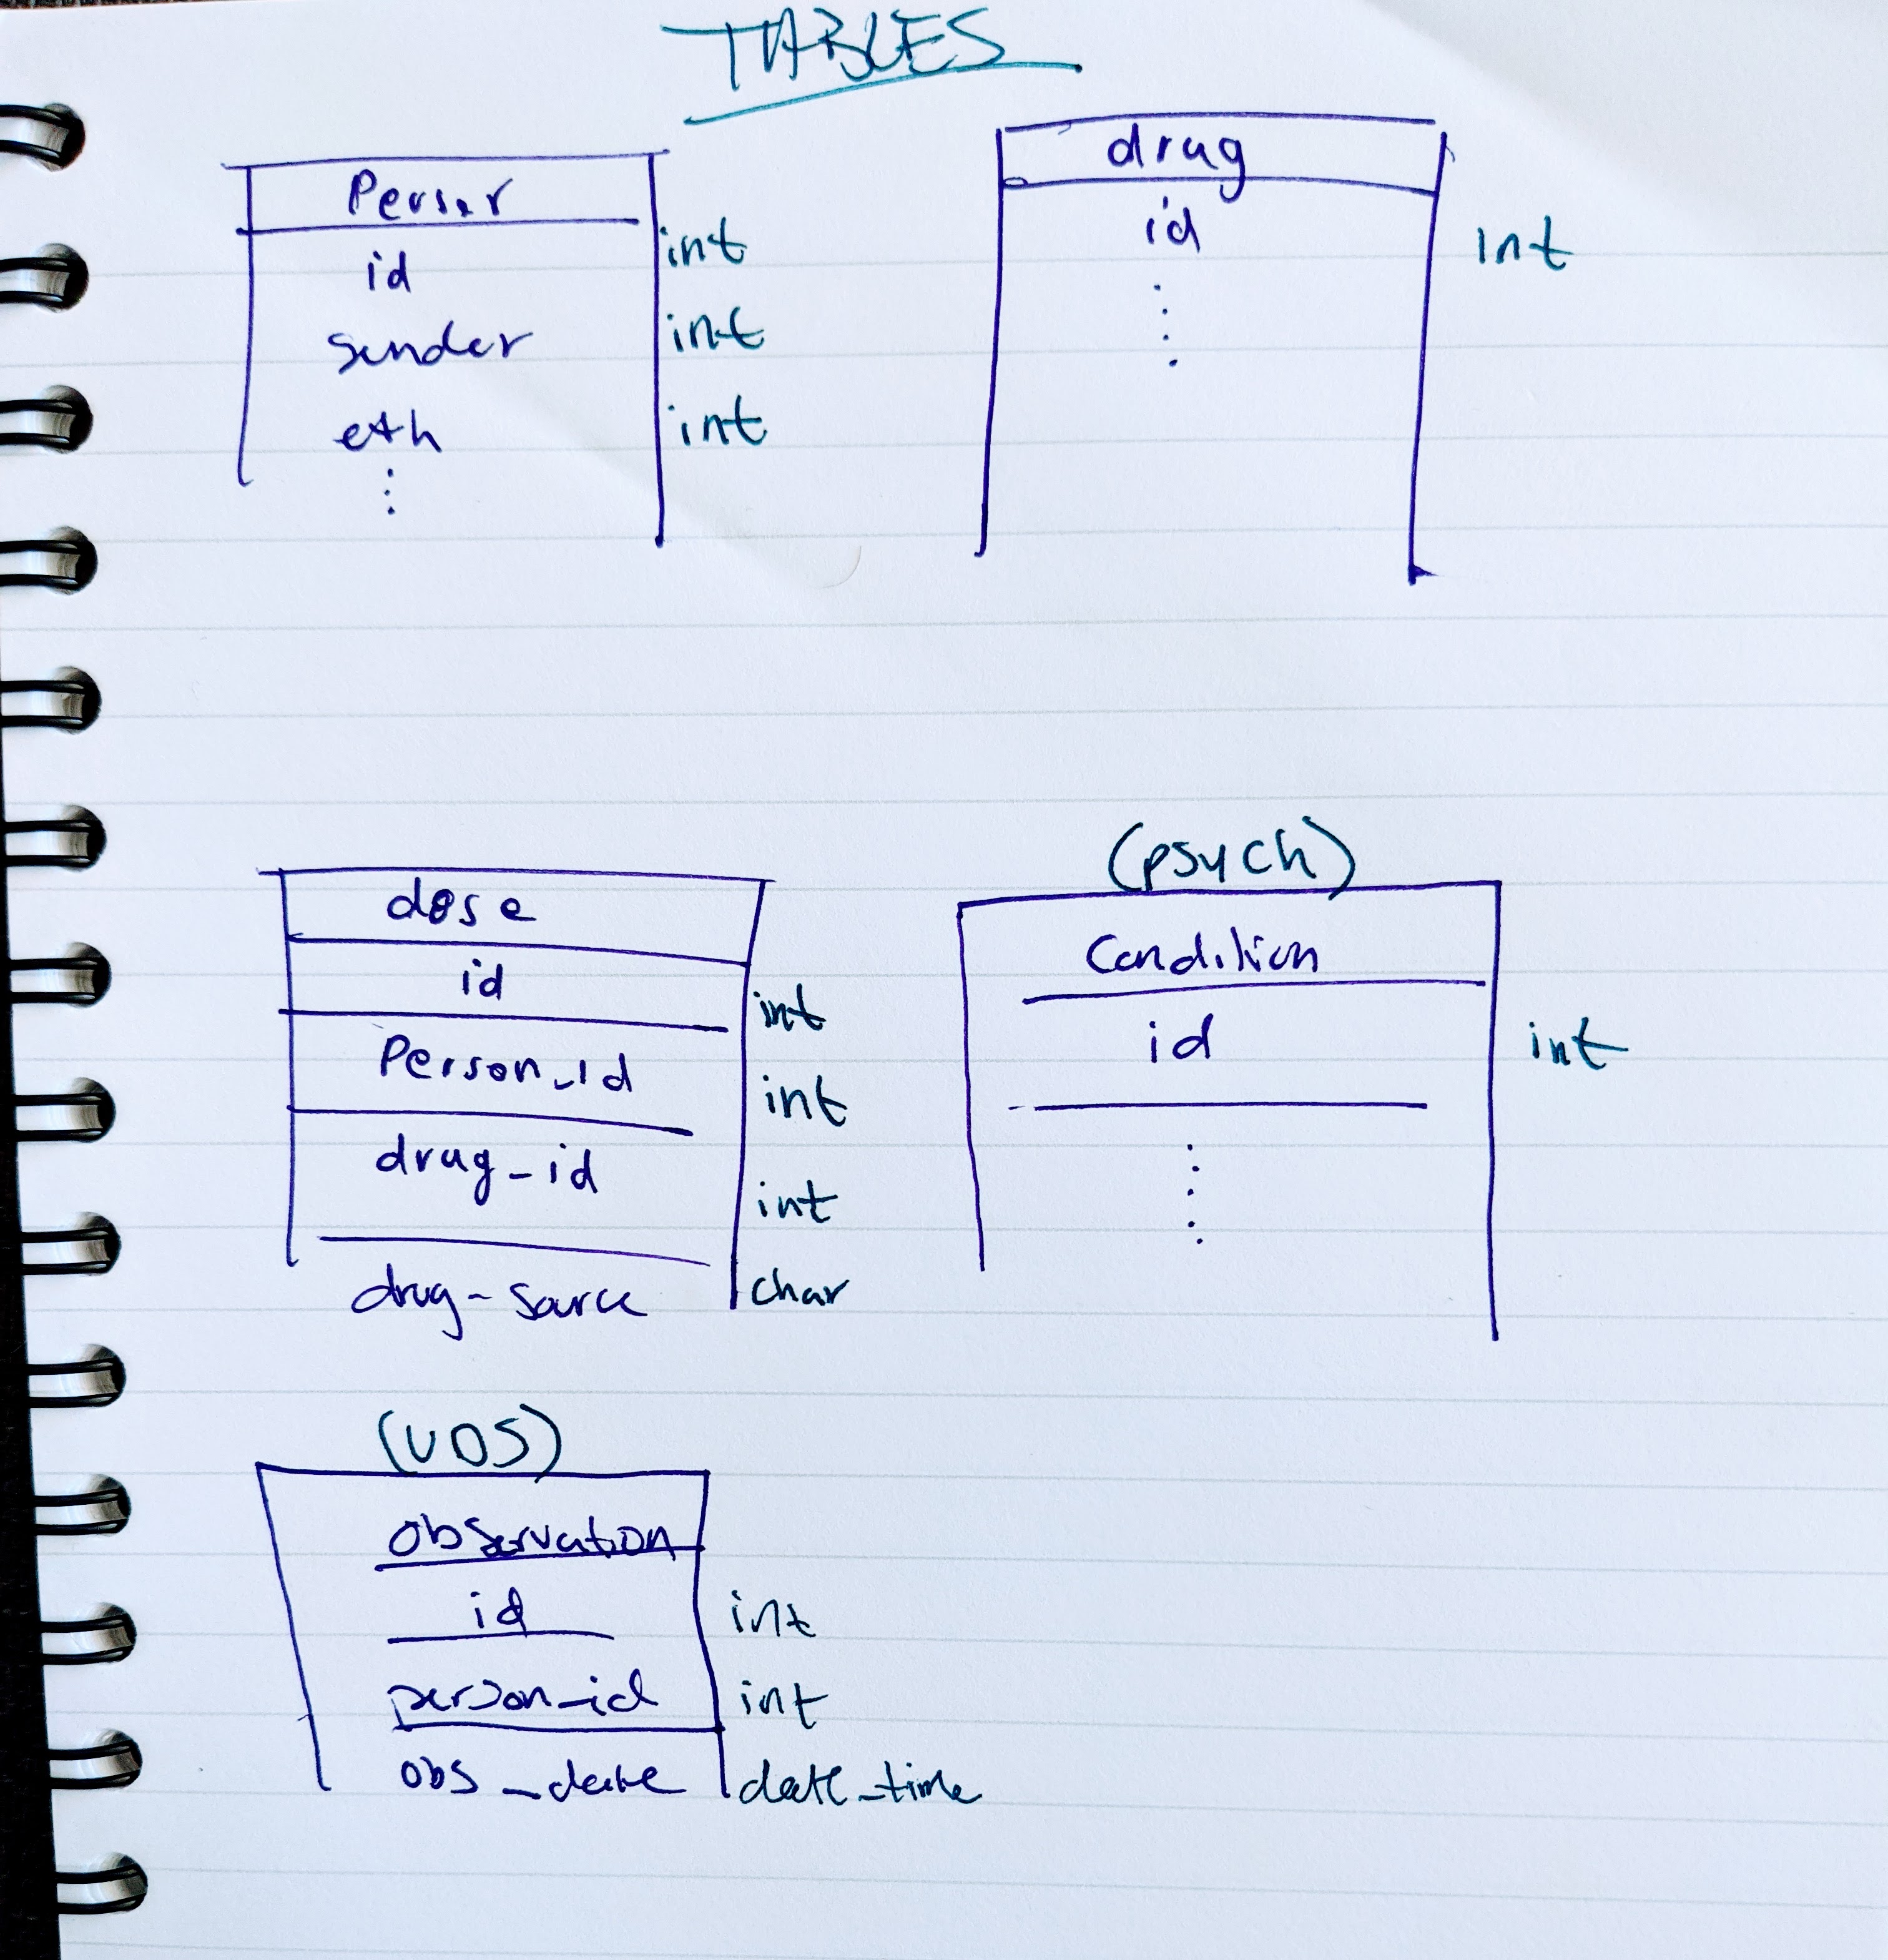 TABLES
Person
id int
gender int
eth int
drug
id int
dose
id int
Person_id int
drug_id int
drug-source char
(psych)
Condition
id int
(UDS)
observation
id int
person_id int
obs_date date_time